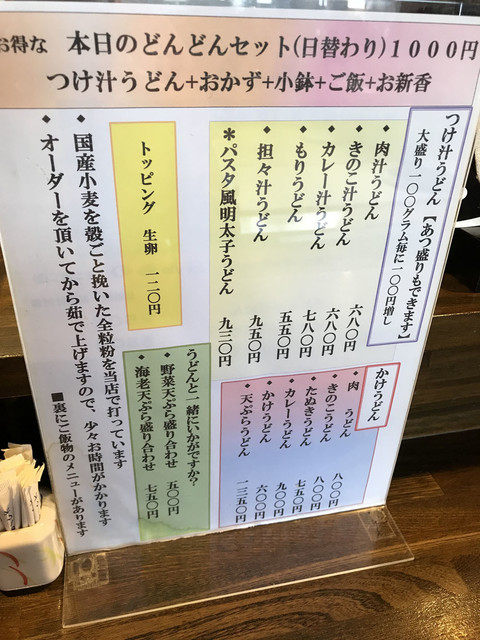 お得な 本日のどんどんセット(日替わり)1000円
つけ汁うどん+おかず+小鉢+ご飯+お新香
つけ汁うどん【あつ盛りもできます】
大盛り一〇〇グラム毎に一〇〇円増し
・肉汁うどん 六八〇円
・きのこ汁うどん 六八〇円
・カレー汁うどん 七八〇円
・もりうどん 五五〇円
・担々汁うどん 九五〇円
*パスタ風明太子うどん 九三〇円
かけうどん
・肉うどん 八〇〇円
・きのこうどん 八〇〇円
・たぬきうどん 七五〇円
・カレーうどん 九〇〇円
・かけうどん 六〇〇円
・天ぷらうどん 一三五〇円
トッピング 生卵 一二〇円
うどんと一緒にいかがですか?
・野菜天ぷら盛り合わせ 五〇〇円
・海老天ぷら盛り合わせ 七五〇円
◆国産小麦を殻ごと挽いた全粒粉を当店で打っています
◆オーダーを頂いてから茹で上げますので、少々お時間がかかります
■裏にご飯物のメニューがあります